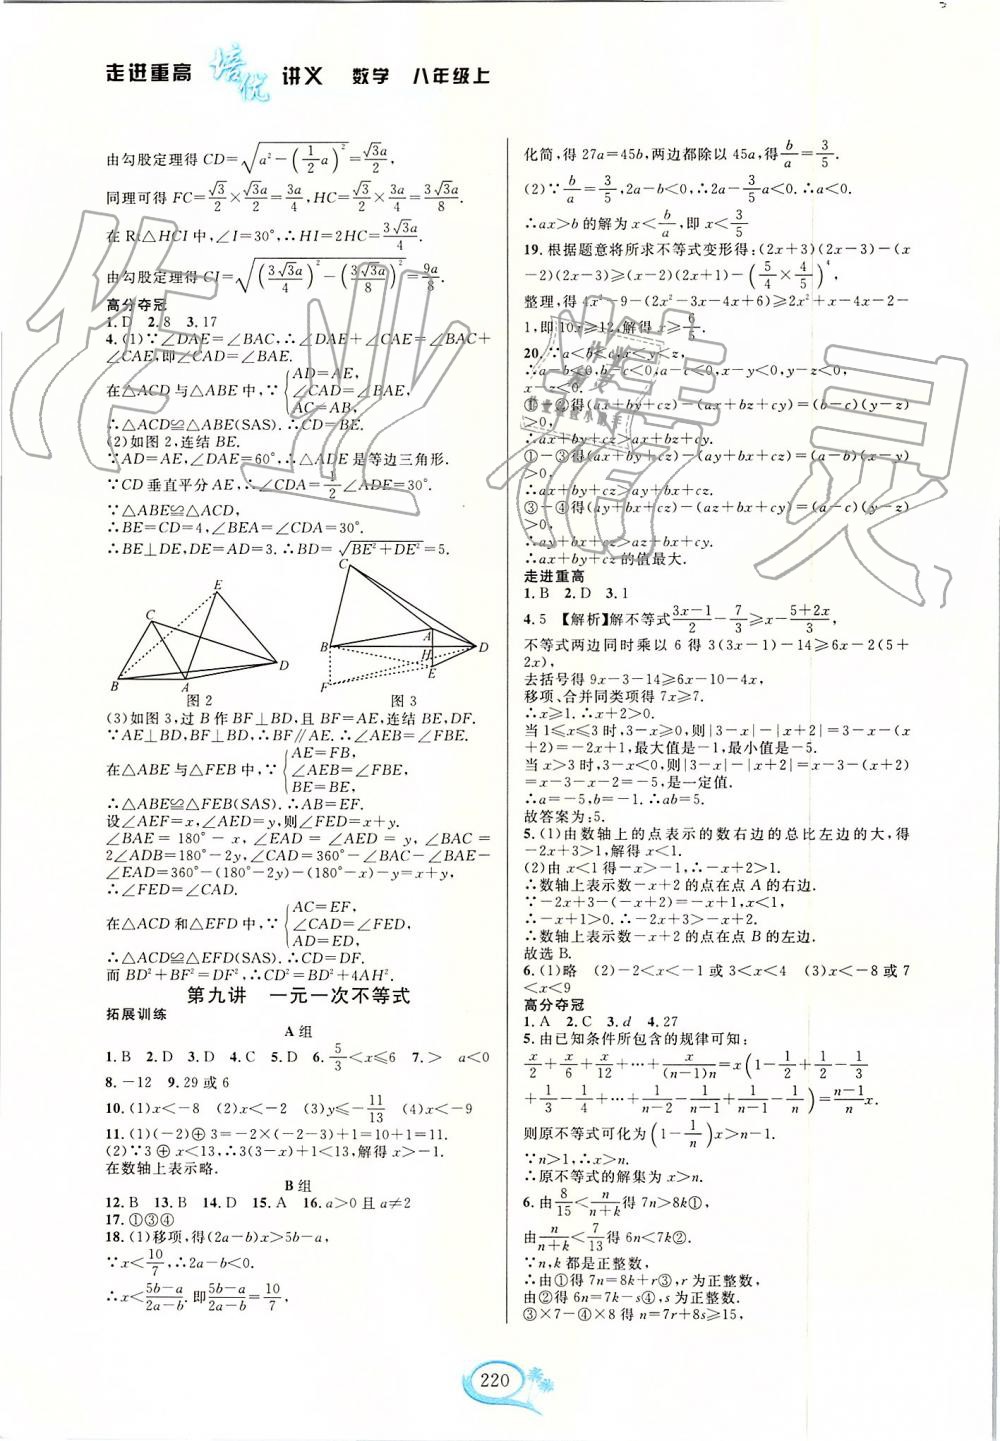 走进重高 培优 讲义 数学 八年级上
由勾股定理得 CD=√(a²-(1/2 a)²)=√3a/2,
同理可得 FC=√3/2×√3a/2=3a/4,HC=√3/2×3a/4=3√3a/8.
在 Rt△HCI 中,∠I=30°,∴HI=2HC=3√3a/4.
由勾股定理得 CI=√((3√3a/4)²-(3√3a/8)²)=9a/8.
高分夺冠
1.D 2.8 3.17
4.(1)∵∠DAE=∠BAC,∴∠DAE+∠CAE=∠BAC+
∠CAE,即∠CAD=∠BAE.
在△ACD 与△ABE 中,∵{AD=AE, ∠CAD=∠BAE, AC=AB,
∴△ACD≌△ABE(SAS).∴CD=BE.
(2)如图 2,连结 BE.
∵AD=AE,∠DAE=60°,∴△ADE 是等边三角形.
∵CD 垂直平分 AE,∴∠CDA=1/2∠ADE=30°.
∵△ABE≌△ACD,
∴BE=CD=4,∠BEA=∠CDA=30°.
∴BE⊥DE,DE=AD=3.∴BD=√(BE²+DE²)=5.
E C B A D
图 2
C A B H D E F
图 3
(3)如图 3,过 B 作 BF⊥BD,且 BF=AE,连结 BE,DF.
∵AE⊥BD,BF⊥BD,∴BF∥AE.∴∠AEB=∠FBE.
在△ABE 与△FEB 中,∵{AE=FB, ∠AEB=∠FBE, BE=BE,
∴△ABE≌△FEB(SAS).∴AB=EF.
设∠AEF=x,∠AED=y,则∠FED=x+y.
∠BAE=180°-x,∠EAD=∠AED=y,∠BAC=
2∠ADB=180°-2y,∠CAD=360°-∠BAC-∠BAE-
∠EAD=360°-(180°-2y)-(180°-x)-y=x+y,
∴∠FED=∠CAD.
在△ACD 和△EFD 中,∵{AC=EF, ∠CAD=∠FED, AD=ED,
∴△ACD≌△EFD(SAS).∴CD=DF.
而 BD²+BF²=DF²,∴CD²=BD²+4AH².
第九讲 一元一次不等式
拓展训练
A 组
1.B 2.D 3.D 4.C 5.D 6.5/3<x≤6 7.> a<0
8.-12 9.29 或 6
10.(1)x<-8 (2)x<-2 (3)y≤-11/13 (4)x<-9
11.(1)(-2)⊕3=-2×(-2-3)+1=10+1=11.
(2)∵3⊕x<13,∴3(3-x)+1<13,解得 x>-1.
在数轴上表示略.
B 组
12.B 13.B 14.D 15.A 16.a>0 且 a≠2
17.①③④
18.(1)移项,得(2a-b)x>5b-a,
∵x<10/7,∴2a-b<0.
∴x<(5b-a)/(2a-b).即(5b-a)/(2a-b)=10/7,
化简,得 27a=45b,两边都除以 45a,得b/a=3/5.
(2)∵b/a=3/5,2a-b<0,∴2a-3/5a<0.∴a<0.
∴ax>b 的解为 x<b/a,即 x<3/5
19.根据题意将所求不等式变形得:(2x+3)(2x-3)-(x
-2)(2x-3)≥(x-2)(2x+1)-(5/4×4/5)⁴,
整理,得 4x²-9-(2x²-3x-4x+6)≥2x²+x-4x-2-
1,即 10x≥12,解得 x≥6/5.
20.∵a<b<c,x<y<z,
∴a-b<0,b-c<0,a-c<0,x-y<0,y-z<0,
x-z<0.
①-②得(ax+by+cz)-(ax+bz+cy)=(b-c)(y-z)
>0,
∴ax+by+cz>ax+bz+cy.
①-③得(ax+by+cz)-(ay+bx+cz)=(a-b)(x-y)
>0,
∴ax+by+cz>ay+bx+cz.
③-④得(ay+bx+cz)-(az+bx+cy)=(a-c)(y-z)
>0,
∴ay+bx+cz>az+bx+cy.
∴ax+by+cz 的值最大.
走进重高
1.B 2.D 3.1
4.5 【解析】解不等式(3x-1)/2-7/3≥x-(5+2x)/3,
不等式两边同时乘以 6 得 3(3x-1)-14≥6x-2(5+
2x),
去括号得 9x-3-14≥6x-10-4x,
移项、合并同类项得 7x≥7.
∴x≥1.∴x+2>0.
当 1≤x≤3 时,3-x≥0,则|3-x|-|x+2|=3-x-(x
+2)=-2x+1,最大值是-1,最小值是-5.
当 x>3 时,3-x<0,则|3-x|-|x+2|=x-3-(x+2)
=x-3-x-2=-5,是一定值.
∴a=-5,b=-1.∴ab=5.
故答案为:5.
5.(1)由数轴上的点表示的数右边的总比左边的大,得
-2x+3>1,解得 x<1.
(2)由 x<1 得-x>-1,∴-x+2>1.
∴数轴上表示数-x+2 的点在点 A 的右边.
∵-2x+3-(-x+2)=-x+1,x<1,
∴-x+1>0.∴-2x+3>-x+2.
∴数轴上表示数-x+2 的点在点 B 的左边.
故选 B.
6.(1)略 (2)-2<x<-1 或 3<x<4 (3)x<-8 或 7
<x<9
高分夺冠
1.A 2.C 3.d 4.27
5.由已知条件所包含的规律可知:
x/2+x/6+x/12+…+x/((n-1)n)=x(1-1/2+1/2-1/3
+1/3-1/4+…+1/(n-2)-1/(n-1)+1/(n-1)-1/n)=(n-1)/n x.
则原不等式可化为(1-1/n)x>n-1.
∵n>1,∴1-1/n>0.
∴原不等式的解集为 x>n.
6.由8/15<n/(n+k)得 7n>8k①,
由n/(n+k)<7/13得 6n<7k②.
∵n,k 都是正整数,
∴由①得 7n=8k+r③,r 为正整数.
由②得 6n=7k-s④,s 为正整数.
③×7-④×8 得 n=7r+8s≥15,
220
作业精灵